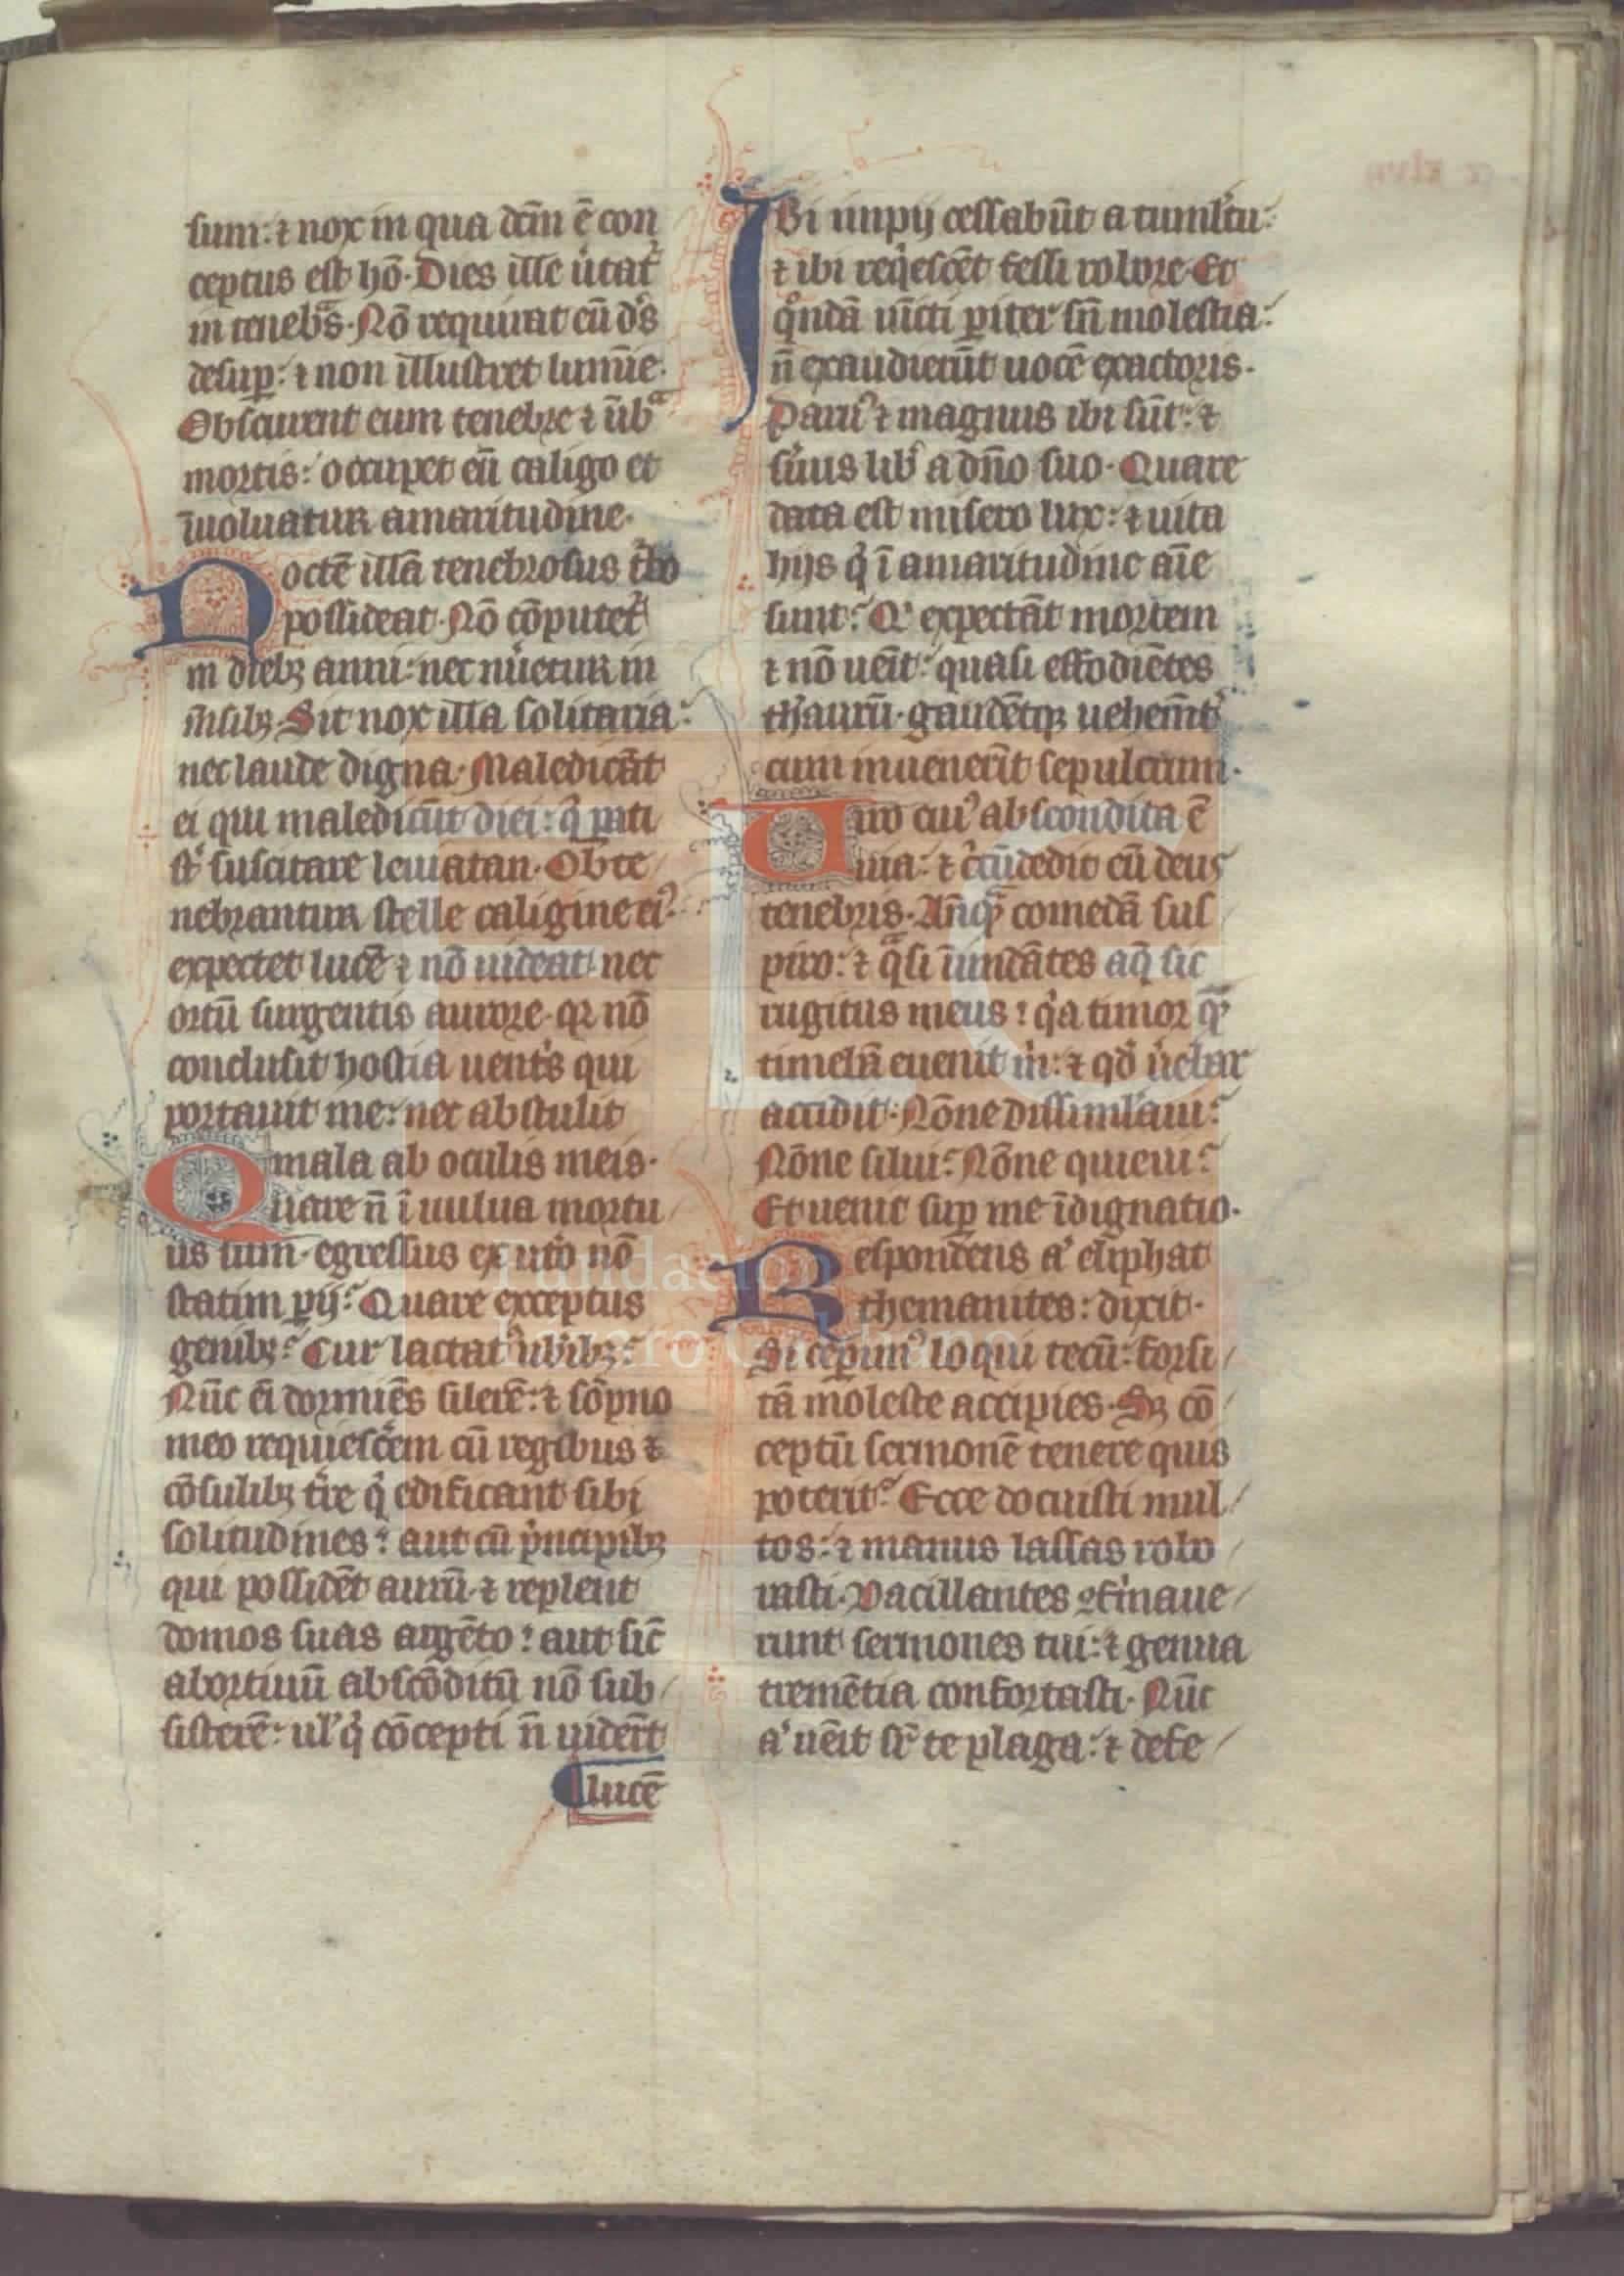 sum: ⁊ nox in qua dc̄m ē con
ceptus est hō. Dies ille ūtat᷑
in tenebͣs. Nō requirat eū dꝰs
desuꝑ: ⁊ non illustret lumīe.
Obscurent eum tenebre ⁊ ūbͣ
mortis: occupet eū caligo et
īuoluatur amaritudine.
Noctē illā tenebrosus t̄bo
possideat. Nō cōputet᷑
in diebꝫ anni: nec nūetur in
m̄sibꝫ. Sit nox illa solitaria:
nec laude digna. Maledicāt
ei qui maledicūt diei: q̇ pati
st̄ suscitare leuiatan. Obte
nebrantur stelle caligine eiꝰ.
expectet lucē ⁊ nō uideat nec
ortū surgentis aurore. qꝛ nō
conclusit hostia uentͥs qui
portauit me: nec abstulit
mala ab oculis meis.
Quare n̄ ī uulua mortu
us sum. egressus ex ut̄o nō
statim ꝑij? Quare exceptus
genibꝫ? Cur lactatꝰ ub̄ibꝫ?
Nūc ei dormiēs silerē: ⁊ sōpno
meo requiesc̄em cū regibus ⁊
cōsulibꝫ t̄re q̇ edificant sibi
solitudines: aut cū pͥncipibꝫ
qui possidēt aurū. ⁊ replent
domos suas argēto: aut sic̄
abortiuū abscōditū nō sub
sisterē: ul' q̇ cōcepti n̄ uider̄t
lucē
Ibi impij cessabūt a tumltu:
⁊ ibi reqͥescēt fessi robore. Et
qͦndā uīcti ꝑiter sn̄ molestia:
n̄ exaudierūt uocē exactoris.
Paruꝰ ⁊ magnus ibi sūt: ⁊
s̄uus lib̄ a dn̄o suo. Quare
data est misero lux: ⁊ uita
hijs q̇ ī amaritudine aīe
sunt? Qͥ expectāt mortem
⁊ nō uēit: quasi effodiētes
th̄aurū. gaudētqꝫ uehem̄tͬ
cum inuenerīt sepulcrum.
Uiro cuiꝰ abscondita ē
uia: ⁊ c̄cūdedit eū deus
tenebris. An̄qͣꝫ comedā sus
piro: ⁊ qͣsi īundātes aq̄ sic
rugitus meus: qͥa timor qͣꝫ
timebā euenit m̄: ⁊ qd̄ u̇ebar
accidit. Nōne dissimlaui?
Nōne silui? Nōne quieui?
Et uenit suꝑ me īdignatio.
Respondens aͥ eliphat
themanites: dixit.
Si ceperimꝰ loqui tecū: forsi
tā moleste accipies. Sꝫ cō
ceptū sermonē tenere quis
poterit? Ecce docuisti mul
tos: ⁊ manus lassas robo
rasti. Vacillantes ꝯfirmaue
runt sermones tui: ⁊ genua
tremētia confortasti. Nūc
aͥ uēit sr̄ te plaga: ⁊ defe
Fundación
Lázaro Galdiano